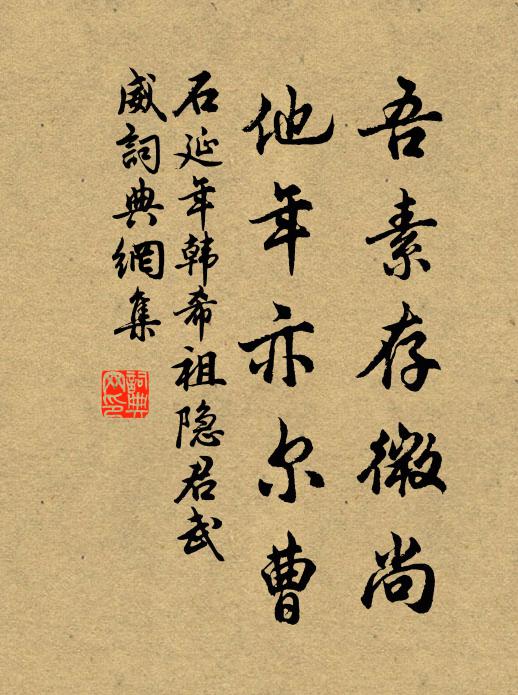 吾素存微尚
他年亦尔曹
石延年韩希祖隐君武
威詞典網集
詞典網印